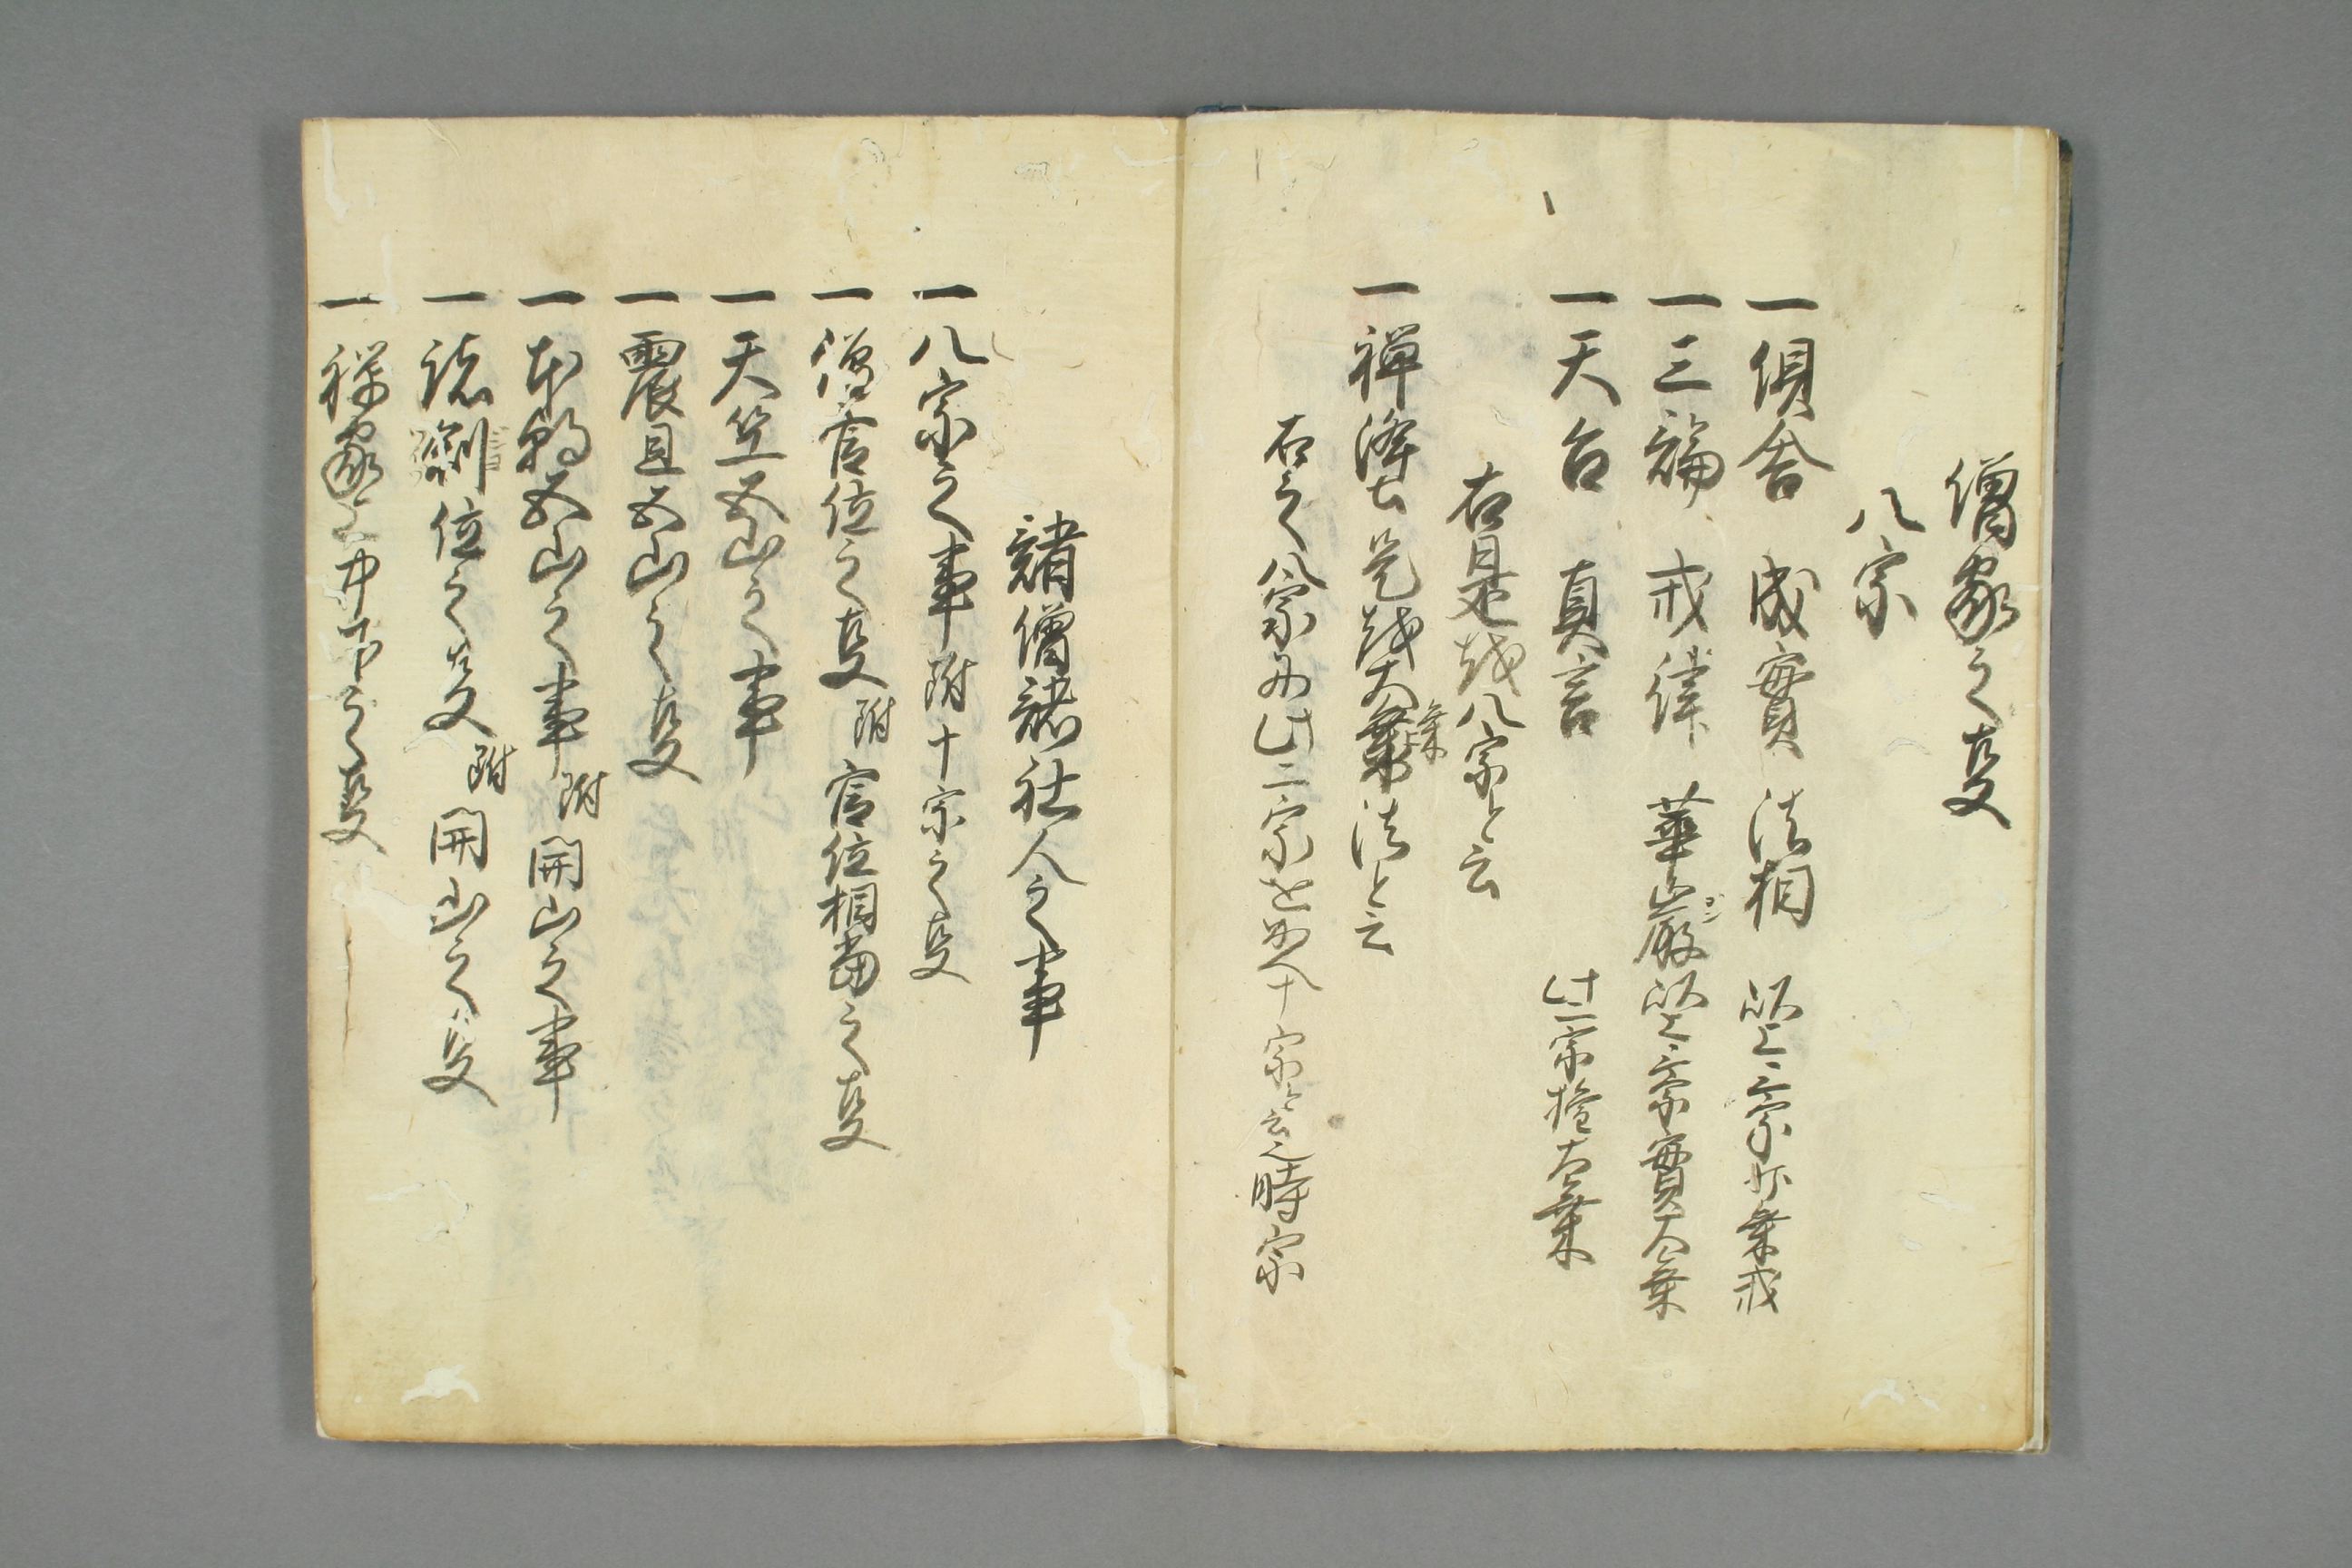 僧家之㕝
八宗
一倶舎　成實　法相　以上三宗小乗戒
一三論　戒律　華嚴ゴン　以上三宗實大乗
一天台　真言　此二宗権大乗
右是越八宗と云
一禅　浄土　是越大乗法と云
右之八宗ニ此二宗を加十宗と云之時宗
諸僧諸社人之事
一八宗之事　附十宗之㕝
一僧官位之㕝　附官位相當之㕝
一天竺五山之事
一震旦五山之㕝
一本朝五山之事　附開山之事
一諸刹位之㕝　附開山之㕝
一禅家上中下之㕝